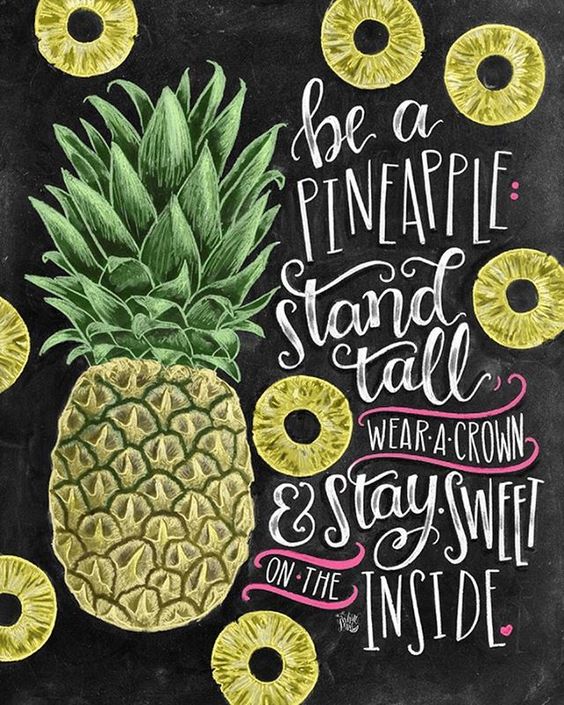 be a
PINEAPPLE:
stand
tall,
WEAR·A·CROWN
& stay·SWEET
ON·THE
INSIDE.